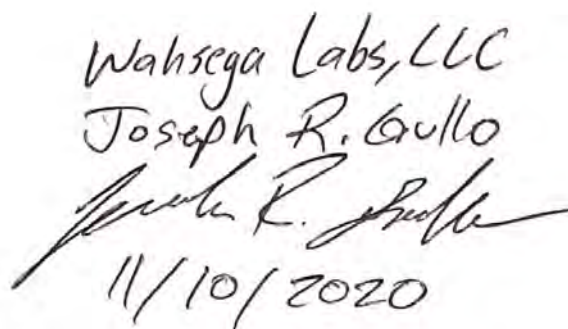 Wahsega Labs, LLC
Joseph R. Gullo
Joseph R. Gullo
11/10/2020